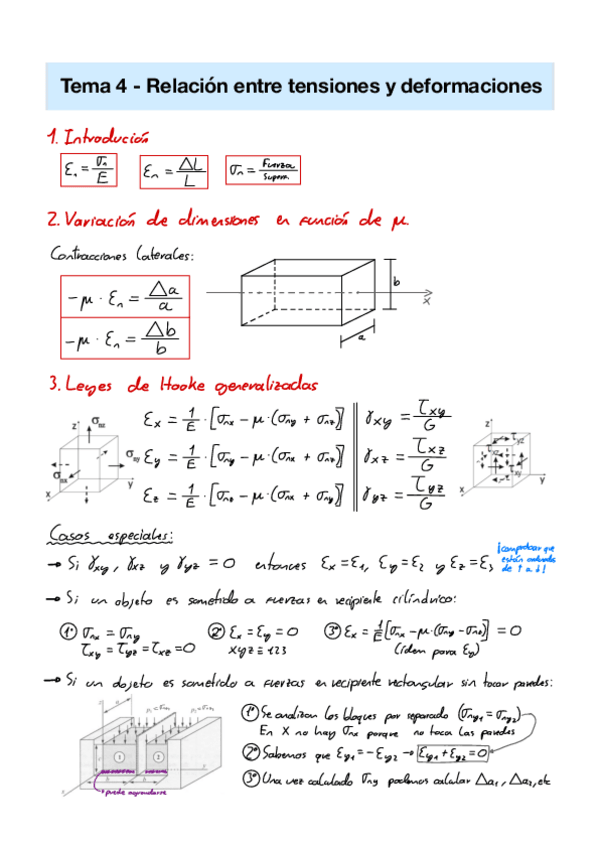 Tema 4 - Relación entre tensiones y deformaciones
1. Introdución
ε₁ = σₙ/E    εₙ = ΔL/L    σₙ = Fuerza/Superf.
2. Variación de dimensiones en función de μ
Contracciones laterales:
-μ · εₙ = Δa/a
-μ · εₙ = Δb/b
b
x
a
3. Leyes de Hooke generalizadas
εx = 1/E · [σnx - μ · (σny + σnz)]    γxy = τxy/G
εy = 1/E · [σny - μ · (σnx + σnz)]    γxz = τxz/G
εz = 1/E · [σnz - μ · (σnx + σny)]    γyz = τyz/G
z σnz σny σnx x y
z τyz τxz τxy x y
Casos especiales:
→ Si γxy, γxz y γyz = 0 entonces εx = ε1, εy = ε2 y εz = ε3
¡comprobar que
están ordenados
de 1 a 3!
→ Si un objeto es sometido a fuerzas en recipiente cilíndrico:
1º σnx = σny    2º εx = εy = 0    3º εx = 1/E [σnx - μ·(σny - σnz)] = 0
τxy = τyz = τxz = 0    xyz ≡ 123    (ídem para εy)
→ Si un objeto es sometido a fuerzas en recipiente rectangular sin tocar paredes:
1º Se analizan los bloques por separado (σny1 = σny2)
En X no hay σnx porque no toca las paredes
2º Sabemos que εy1 = -εy2 → εy1 + εy2 = 0
3º Una vez calculado σny podemos calcular Δa1, Δa2, etc
1 2
puede agrandarse